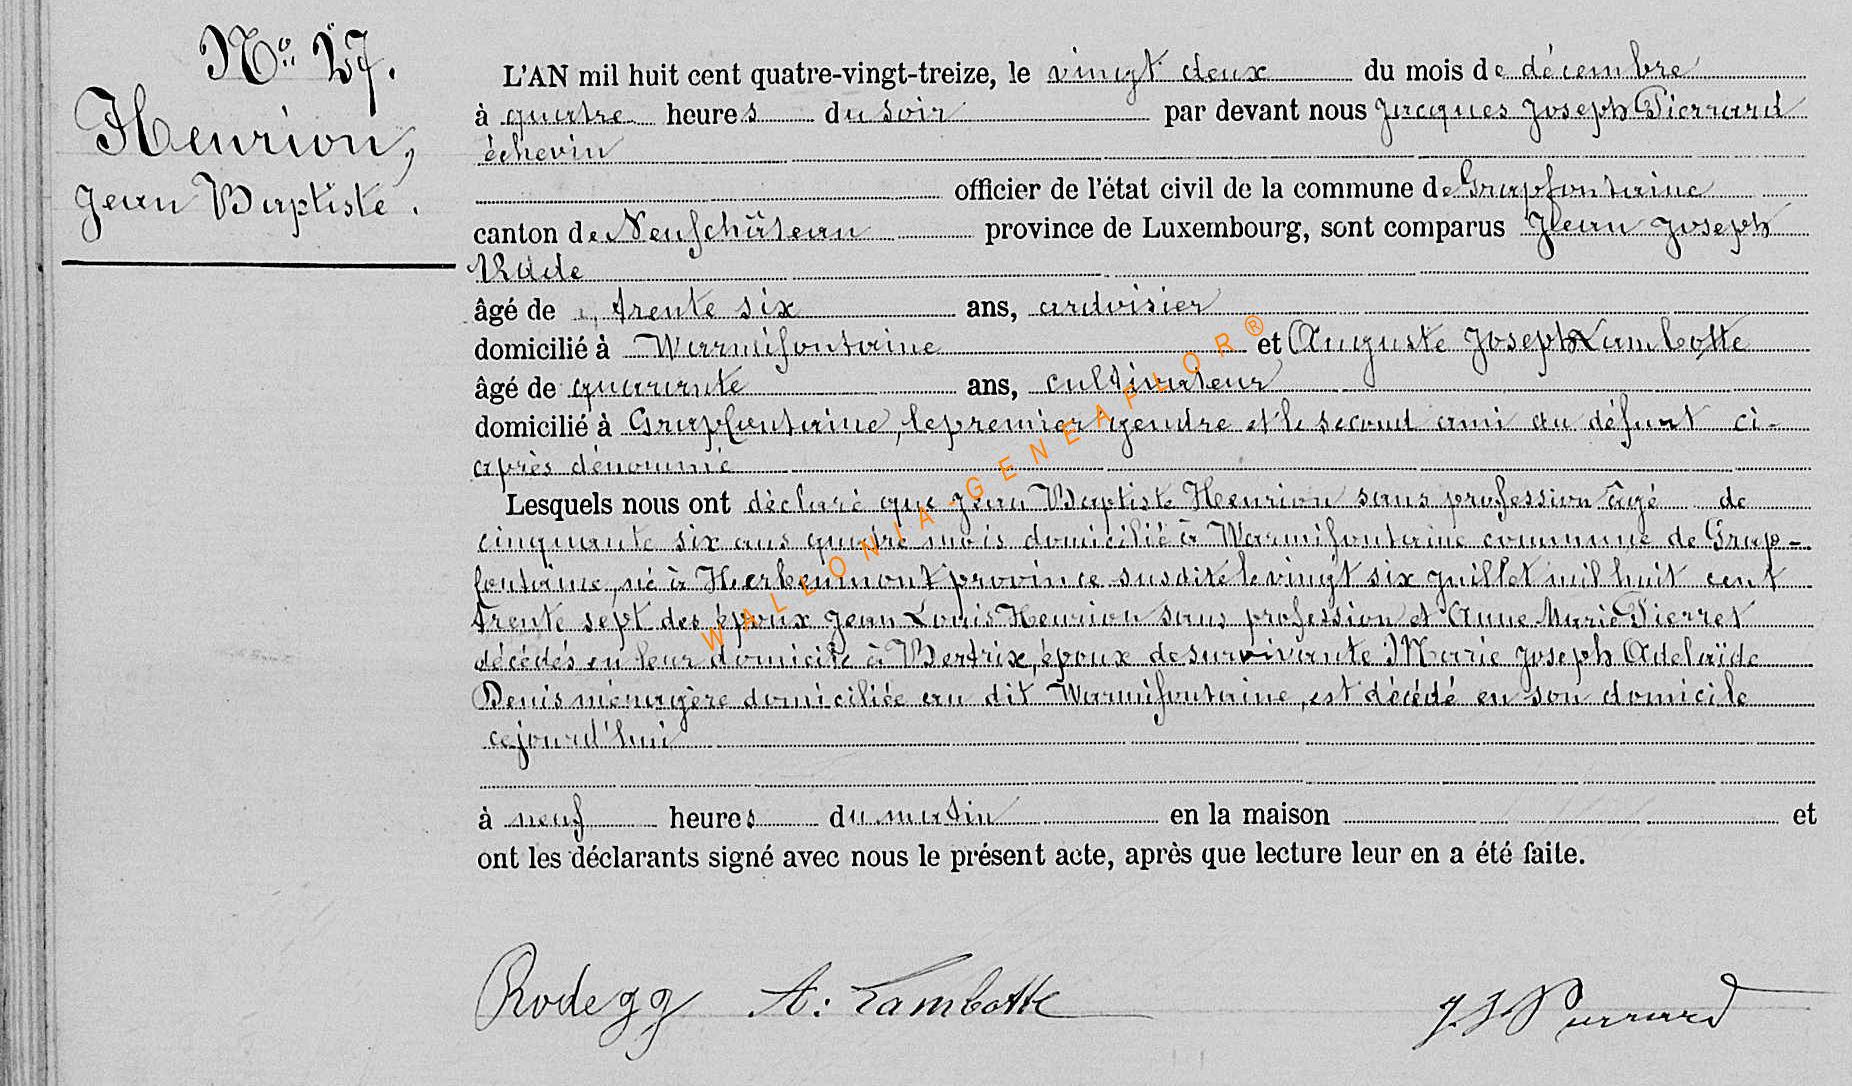 N° 27.
Henrion,
Jean Baptiste.
L'AN mil huit cent quatre-vingt-treize, le vingt deux du mois de décembre
à quatre heures du soir par devant nous Jacques Joseph Pierrard
échevin
officier de l'état civil de la commune de Grapfontaine
canton de Neufchâteau province de Luxembourg, sont comparus Jean Joseph
Rode
âgé de trente six ans, ardoisier
domicilié à Warmifontaine et Auguste Joseph Lambotte
âgé de quarante ans, cultivateur
domicilié à Grapfontaine, le premier gendre et le second ami au défunt ci-
après dénommé
Lesquels nous ont déclaré que Jean Baptiste Henrion sans profession âgé de
cinquante six ans quatre mois domicilié à Warmifontaine commune de Grap-
fontaine, né à Herbeumont province susdite le vingt six juillet mil huit cent
trente sept des époux Jean Louis Henrion sans profession et Anne Marie Pierret
décédés en leur domicile à Bertrix, époux de survivante Marie Joseph Adelaïde
Denis ménagère domiciliée au dit Warmifontaine, est décédé en son domicile
cejourd'hui
à neuf heures du matin en la maison et
ont les déclarants signé avec nous le présent acte, après que lecture leur en a été faite.
Rode JJ A: Lambotte J. J. Pierrard
WALLONIA-GENEAFLOR®